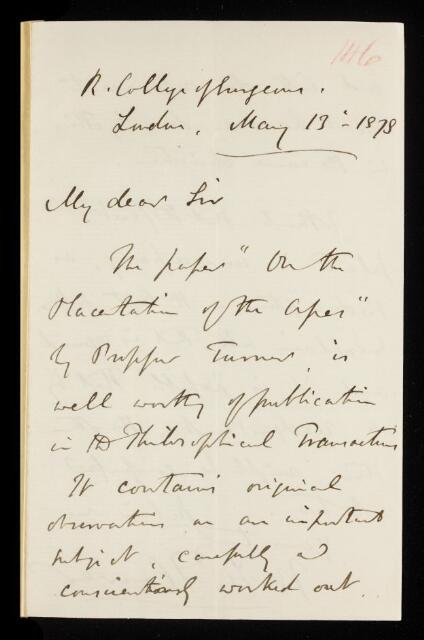 146
R. College of Surgeons.
London, May 13th 1878
My dear Sir
The paper "On the
Placentation of the Apes"
by Professor Turner, is
well worthy of publication
in the Philosophical Transactions
It contains original
observations on an important
subject, carefully and
conscientiously worked out.